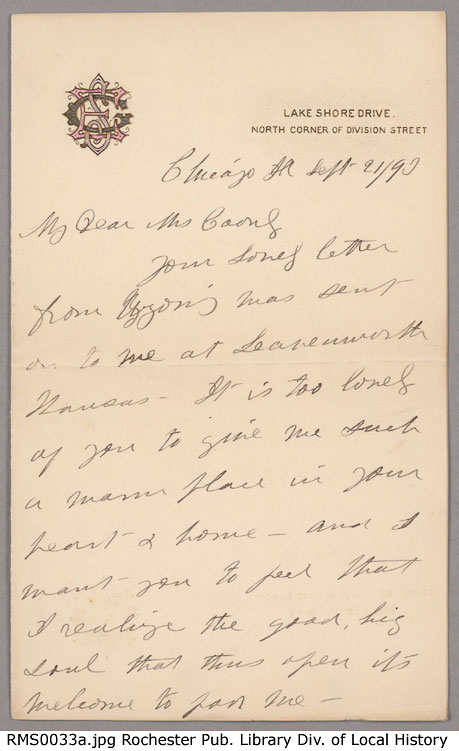 LAKE SHORE DRIVE.
NORTH CORNER OF DIVISION STREET
Chicago Ill Sept 21/93
My Dear Mrs
Your lovely letter
from was sent
on to me at Leavenworth
Kansas - It is too lovely
of you to give me such
a warm place in your
heart & home - and I
want you to feel that
I realize the good, big
soul that thus opens its
welcome to poor me -
RMS0033a.jpg Rochester Pub. Library Div. of Local History